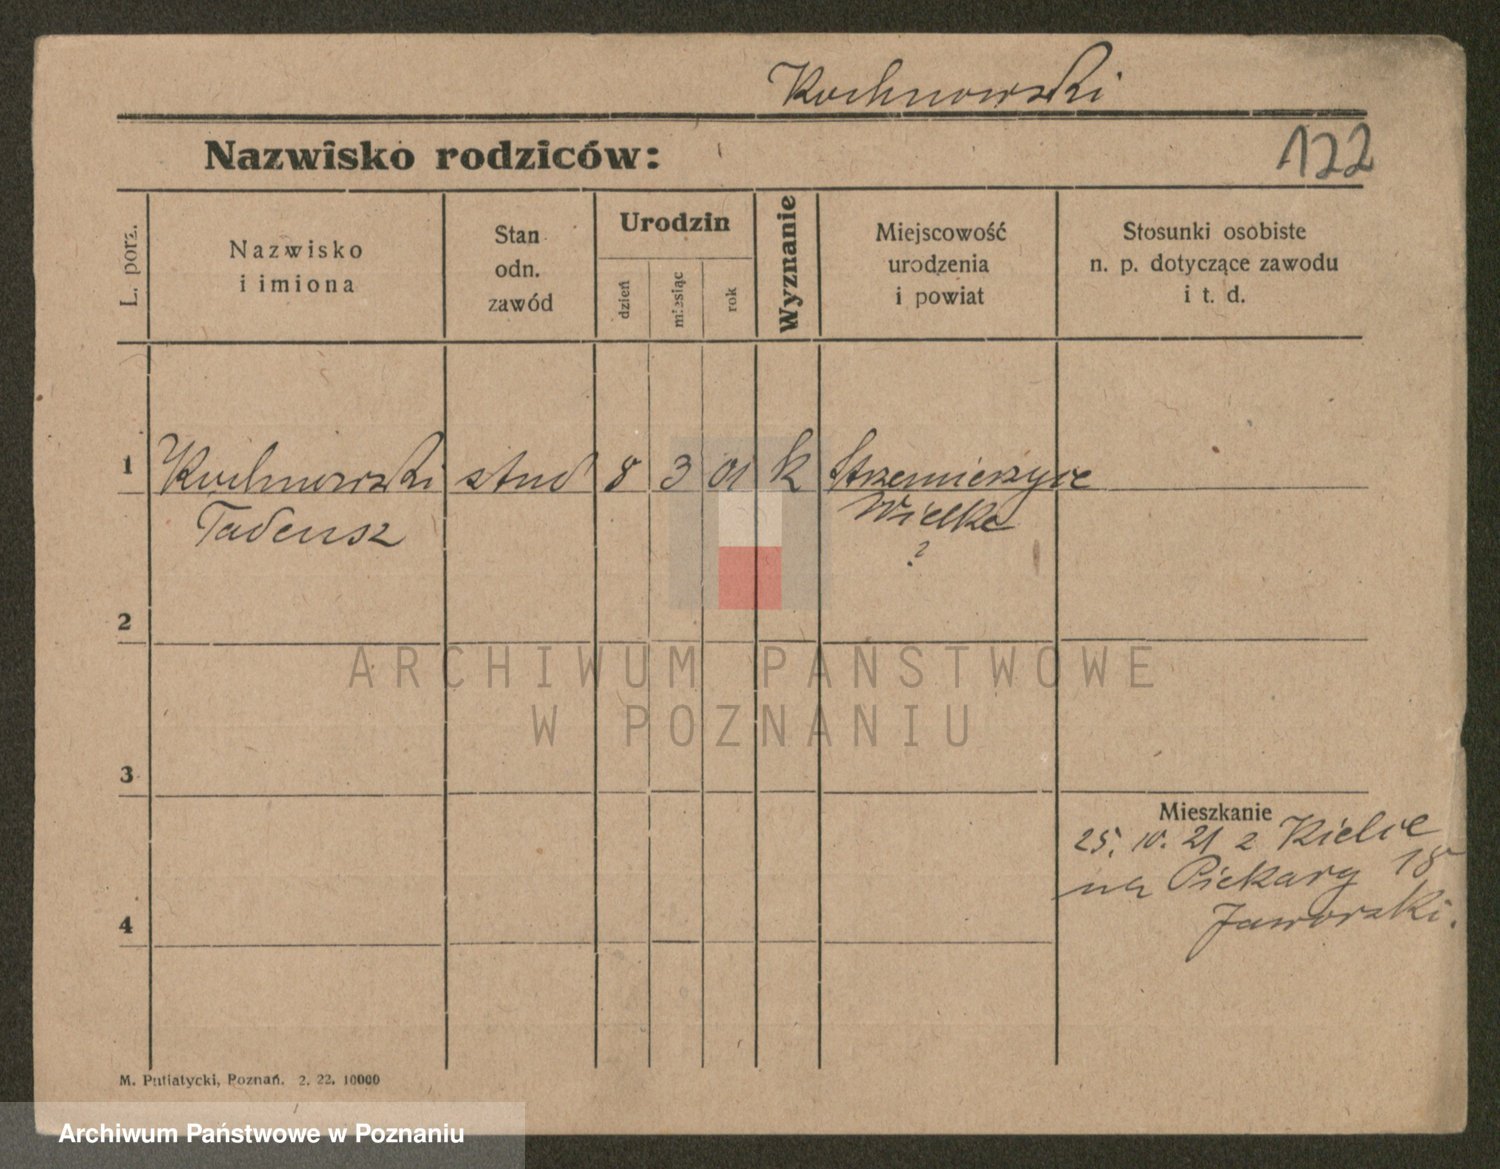 Kochnowski
122
Nazwisko rodziców:
L. porz.
Nazwisko
i imiona
Stan
odn.
zawód
Urodzin
dzień
miesiąc
rok
Wyznanie
Miejscowość
urodzenia
i powiat
Stosunki osobiste
n. p. dotyczące zawodu
i t. d.
1 Kochnowski stud 8 3 01 k Strzemieszyce
Tadeusz Wielke
?
2
3
4
Mieszkanie
25. IV. 21 z Kielce
na Piekary 18
Jaworski.
M. Putiatycki, Poznań. 2. 22. 10000
ARCHIWUM PAŃSTWOWE
W POZNANIU
Archiwum Państwowe w Poznaniu